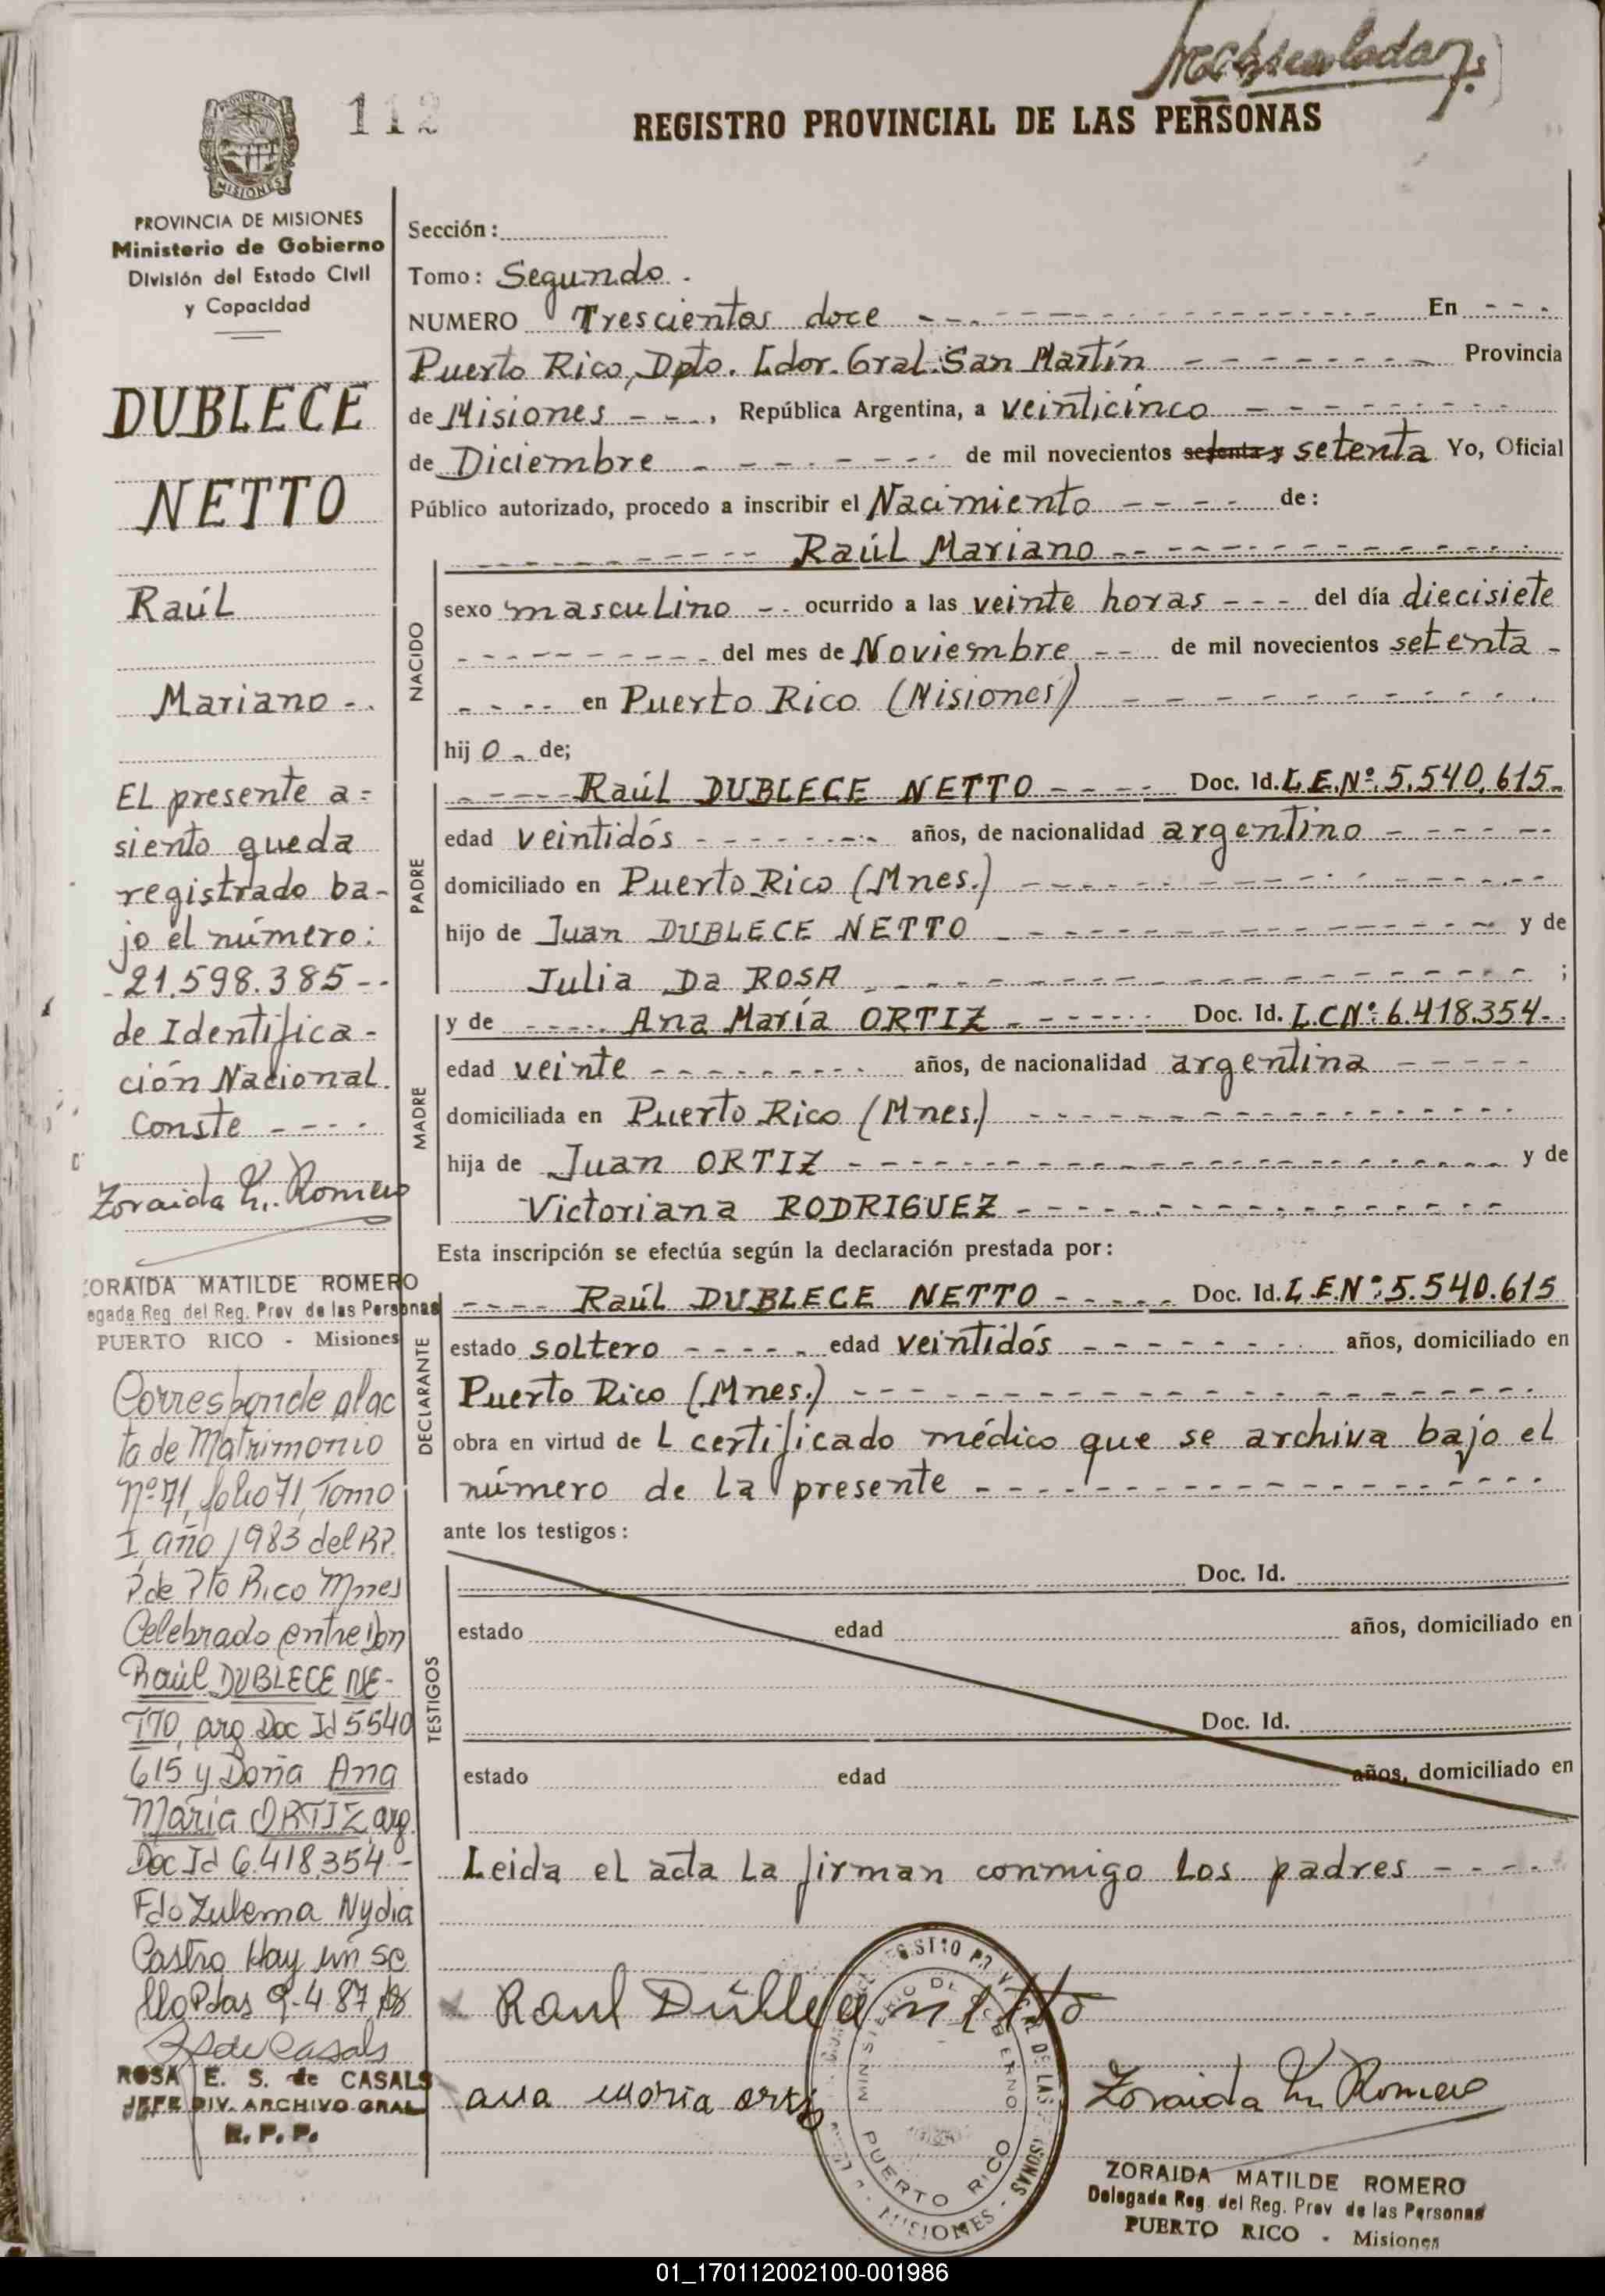 112
REGISTRO PROVINCIAL DE LAS PERSONAS
MISIONES
PROVINCIA DE MISIONES
Ministerio de Gobierno
División del Estado Civil
y Capacidad
DUBLECE
NETTO
Raúl
Mariano -.
EL presente a=
siento queda
registrado ba-
jo el número:
21.598.385--
de Identifica-
ción Nacional.
Conste ----
Zoraida M. Romero
ZORAIDA MATILDE ROMERO
egada Reg. del Reg. Prov de las Personas
PUERTO RICO - Misiones
Corresponde al ac
ta de Matrimonio
Nº 71, folio 71, Tomo
I año 1983 del R.P.
P. de Pto Rico Mnes
Celebrado entre Don
Raúl DUBLECE NE-
TTO, arg Doc Id 5540
615 y Doña Ana
María ORTIZ arg.
Doc Id 6.418.354.-
Fdo Zulema Nydia
Castro Hay un se
llo Pdas 9-4-87
de Casals
ROSA E. S. de CASALS
JEFE DIV. ARCHIVO GRAL
R. P. P.
Sección:
Tomo: Segundo.
NUMERO Trescientos doce ---- En ---
Puerto Rico, Dpto. Ldor. Gral. San Martín ---- Provincia
de Misiones --., República Argentina, a veinticinco ----
de Diciembre ---- de mil novecientos setenta y setenta Yo, Oficial
Público autorizado, procedo a inscribir el Nacimiento ---- de:
---- Raúl Mariano ----
NACIDO
sexo masculino -- ocurrido a las veinte horas --- del día diecisiete
---- del mes de Noviembre -- de mil novecientos setenta -
---- en Puerto Rico (Misiones) ----
hij o - de;
PADRE
---- Raúl DUBLECE NETTO ---- Doc. Id. L.E.Nº:5.540.615-
edad veintidós ---- años, de nacionalidad argentino ----
domiciliado en Puerto Rico (Mnes.) ----
hijo de Juan DUBLECE NETTO ---- y de
Julia Da ROSA ---- ;
MADRE
y de ---- Ana María ORTIZ ---- Doc. Id. L.C.Nº:6.418.354-.
edad veinte ---- años, de nacionalidad argentina ----
domiciliada en Puerto Rico (Mnes.) ----
hija de Juan ORTIZ ---- y de
Victoriana RODRIGUEZ ----
Esta inscripción se efectúa según la declaración prestada por:
DECLARANTE
---- Raúl DUBLECE NETTO ---- Doc. Id. L.E.Nº:5.540.615
estado soltero ---- edad veintidós ---- años, domiciliado en
Puerto Rico (Mnes.) ----
obra en virtud de L certificado médico que se archiva bajo el
número de la presente ----
ante los testigos:
TESTIGOS
Doc. Id.
estado edad años, domiciliado en
Doc. Id.
estado edad años, domiciliado en
Leida el acta la firman conmigo los padres ----
Raul Dublece netto
ana maria ortiz
MINISTERIO DE GOBIERNO
PUERTO RICO
- MISIONES -
Zoraida M. Romero
ZORAIDA MATILDE ROMERO
Delegada Reg. del Reg. Prov de las Personas
PUERTO RICO - Misiones
01_170112002100-001986